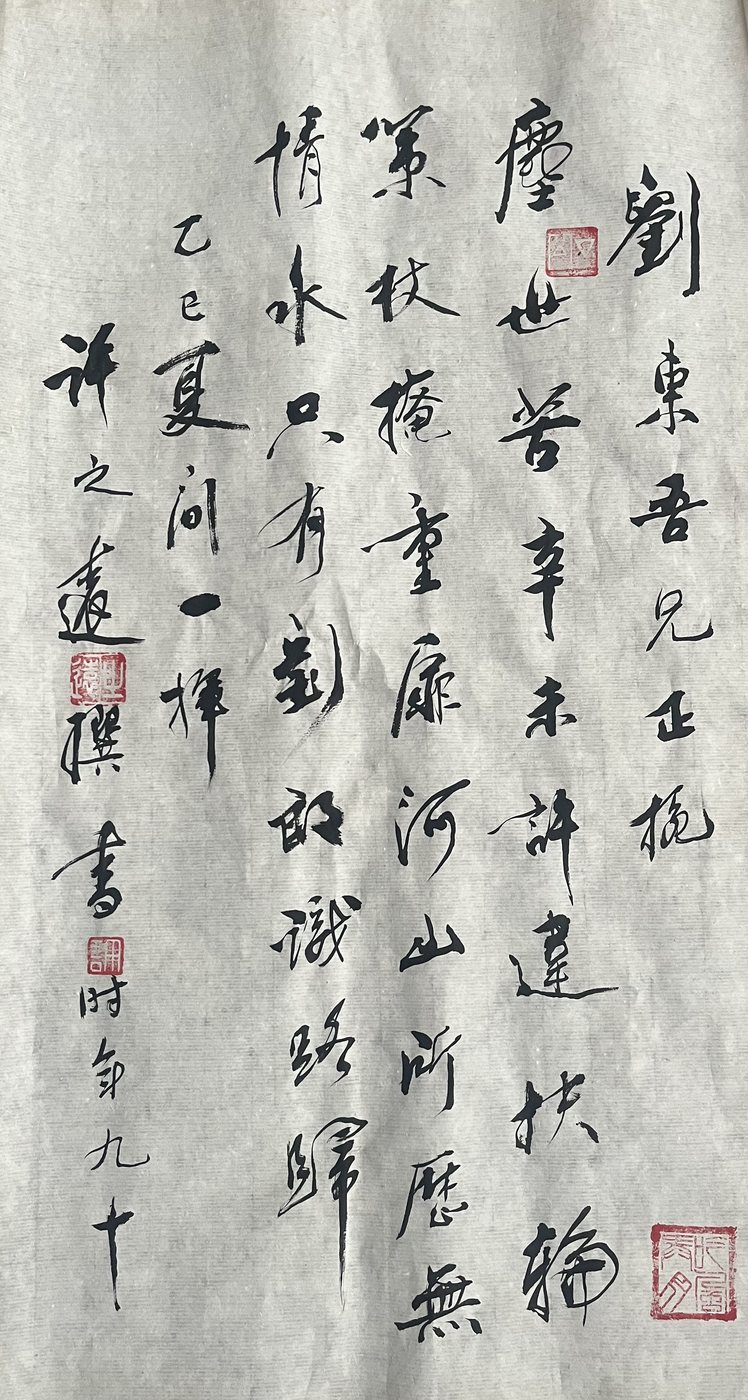 劉東吾兄正
塵世苦辛未許違扶輪
策杖掩重扉河山所歷無
情水只有劉郎識路歸
乙巳夏间一揮
许之遠撰書时年九十
之遠